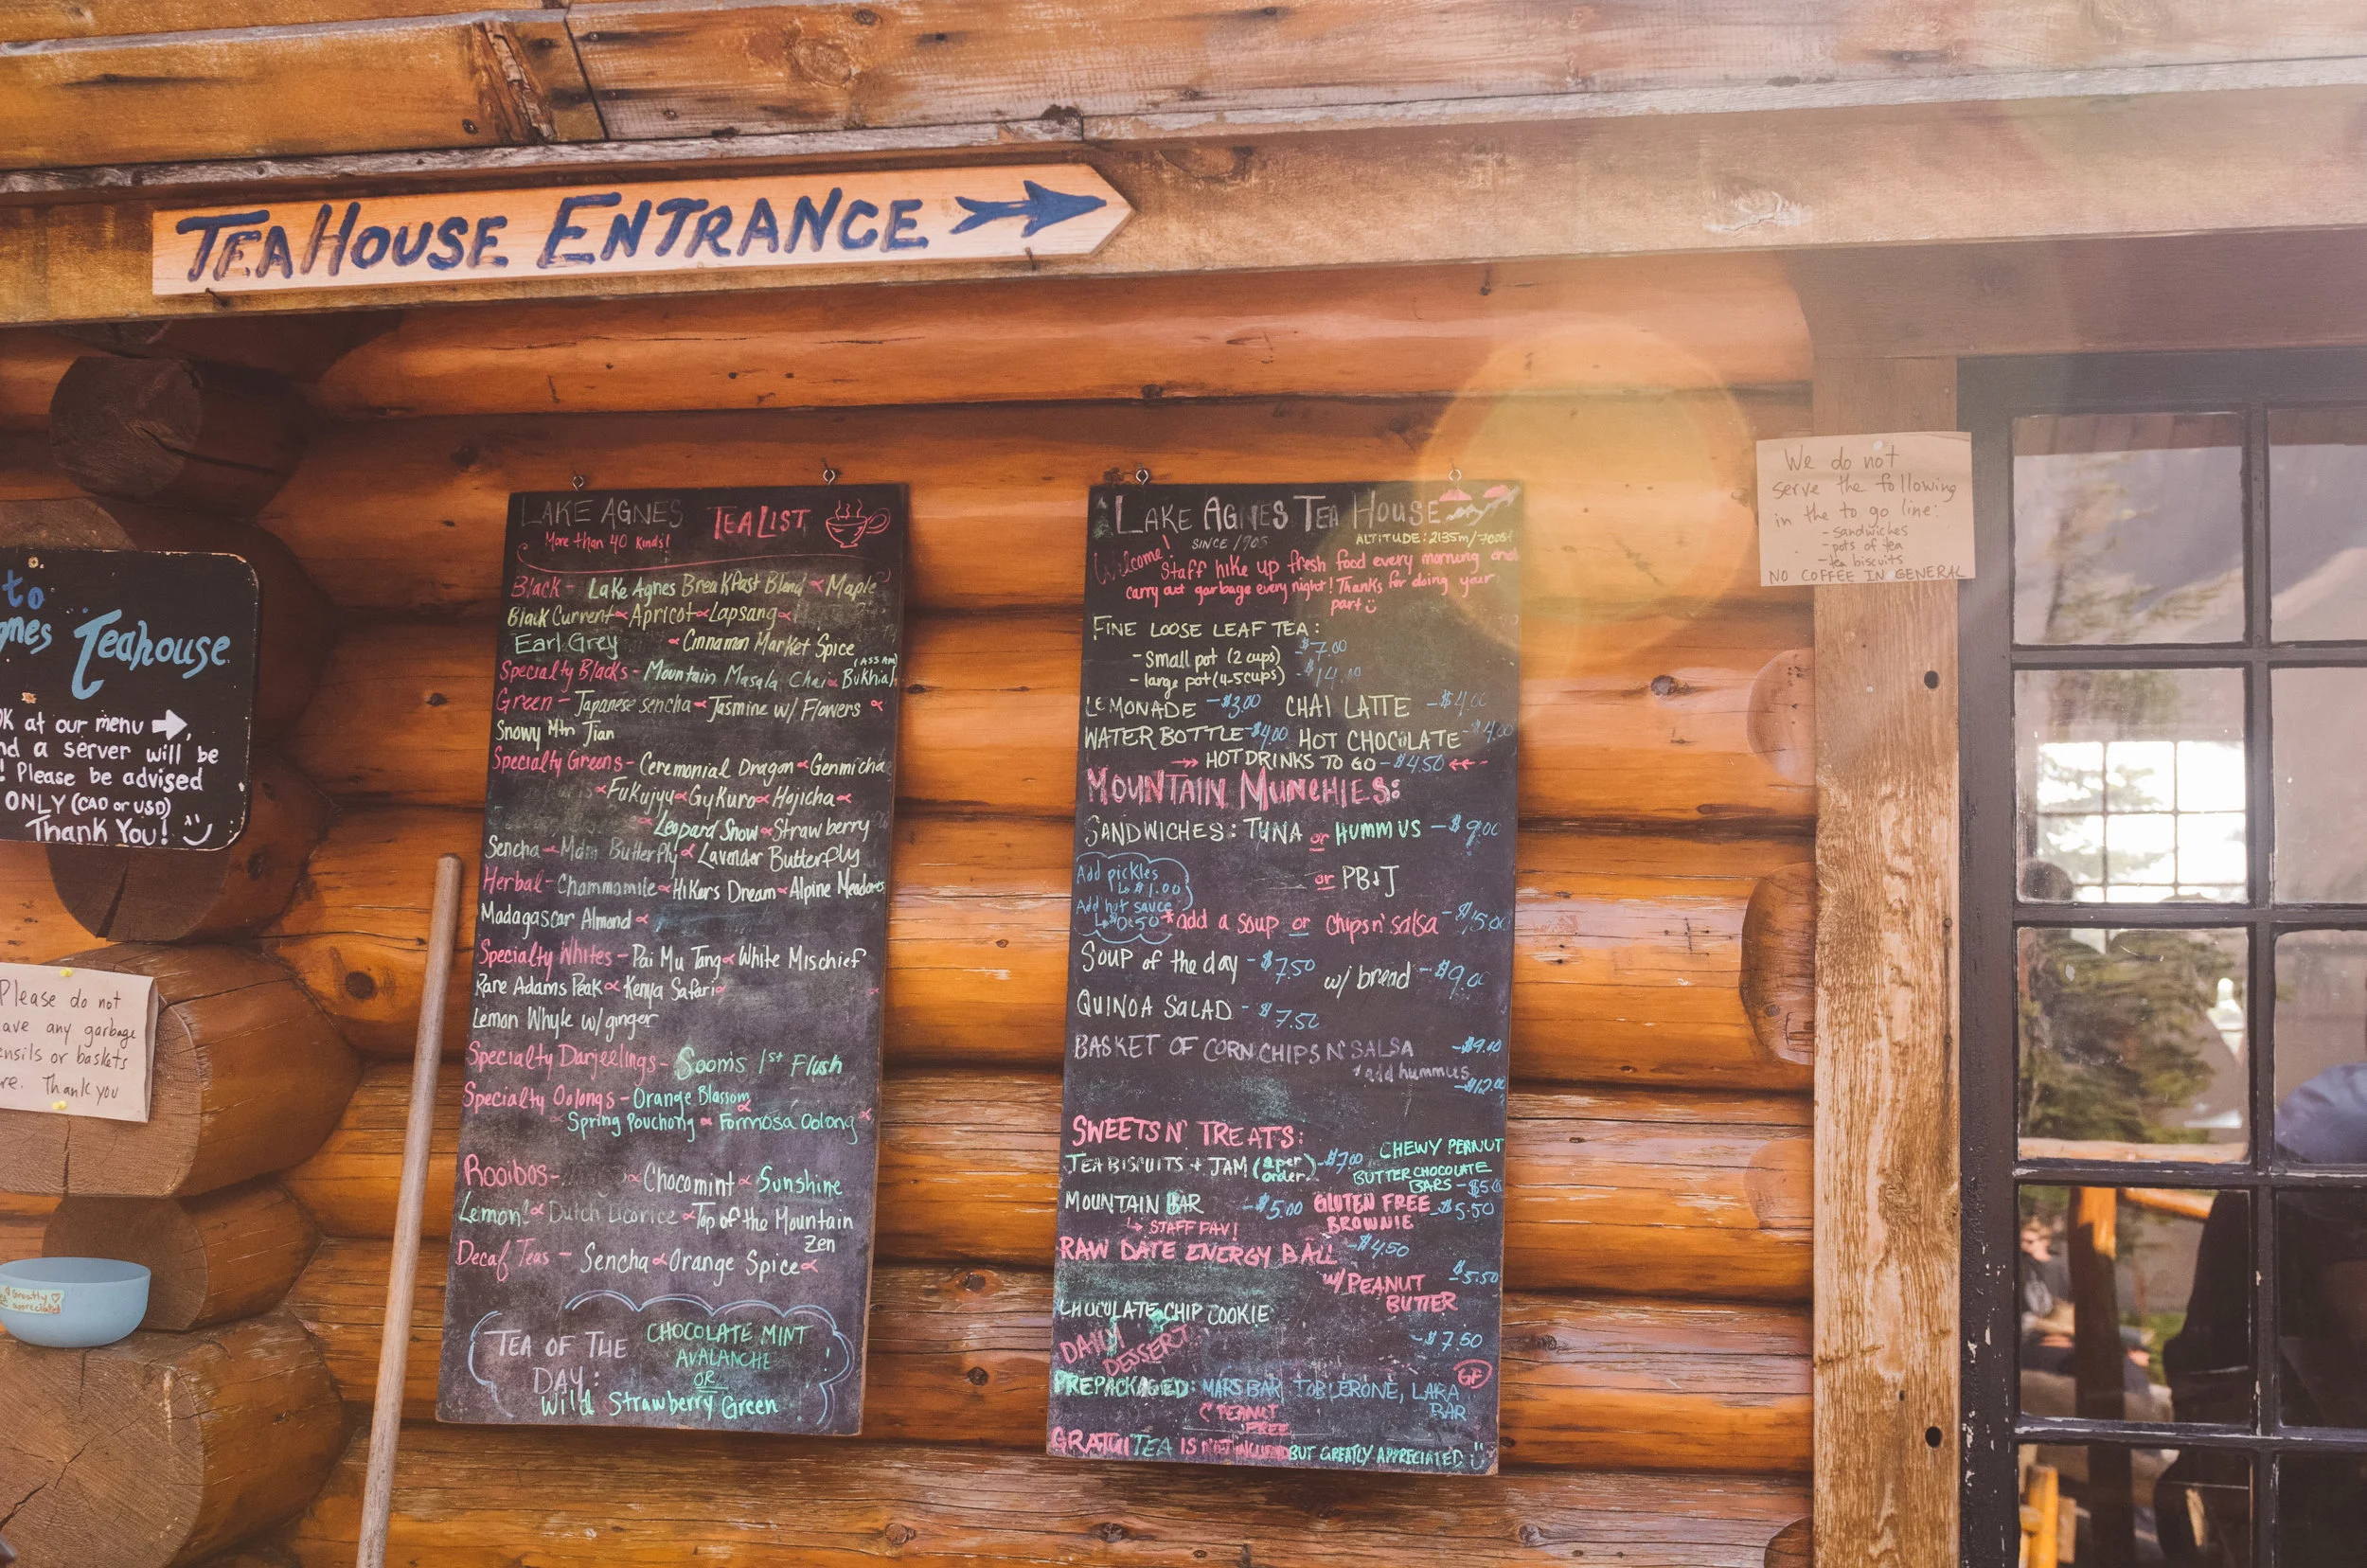 TEAHOUSE ENTRANCE
to
gnes Teahouse
OK at our menu
nd a server will be
! Please be advised
ONLY (CAD or USD)
Thank You!
Please do not
ave any garbage
ensils or baskets
re. Thank you
Greatly
appreciated
LAKE AGNES TEA LIST
More than 40 kinds!
Black - Lake Agnes BreakFast Blend Maple
Black Current Apricot Lapsang
Earl Grey Cinnamon Market Spice
Specialty Blacks - Mountain Masala Chai Bukhial (ASSAM)
Green - Japanese sencha Jasmine w/ Flowers
Snowy Mtn Jian
Specialty Greens - Ceremonial Dragon Genmicha
Fukujyu Gykuro Hojicha
Leopard Snow Strawberry
Sencha - Mdm Butterfly Lavender Butterfly
Herbal - Chammomile Hikers Dream Alpine Meadows
Madagascar Almond
Specialty Whites - Pai Mu Tang White Mischief
Rare Adams Peak Kenya Safari
Lemon Whyle w/ ginger
Specialty Darjeelings - Soom's 1st Flush
Specialty Oolongs - Orange Blassom
Spring Pouchong Formosa Oolong
Rooibos - Chocomint Sunshine
Lemon! Dutch Licorice Top of the Mountain
Zen
Decaf Teas - Sencha Orange Spice
TEA OF THE DAY:
CHOCOLATE MINT
AVALANCHE
OR
Wild Strawberry Green
LAKE AGNES TEA HOUSE
SINCE 1905 ALTITUDE: 2135m/7005f
Welcome! Staff hike up fresh food every morning and
carry out garbage every night! Thanks for doing your
part
FINE LOOSE LEAF TEA:
- Small pot (2 cups) $7.00
- large pot (4-5cups) - $14.00
LEMONADE - $3.00 CHAI LATTE - $4.00
WATER BOTTLE - $4.00 HOT CHOCOLATE - $4.00
HOT DRINKS TO GO - $4.50
MOUNTAIN MUNCHIES:
SANDWICHES: TUNA or HUMMUS - $9.00
or PB&J
Add pickles
$1.00
Add hot sauce
$0.50
*add a soup or chips n' salsa - $15.00
SOUP of the day - $7.50 w/ bread - $9.00
QUINOA SALAD - $7.50
BASKET OF CORN CHIPS N' SALSA - $9.00
add hummus
- $12.00
SWEETS N' TREATS:
TEA BISCUITS + JAM (2 per order) - $7.00
CHEWY PEANUT
BUTTER CHOCOLATE
BARS - $5.00
MOUNTAIN BAR - $5.00
STAFF FAV!
GLUTEN FREE
BROWNIE - $5.50
RAW DATE ENERGY BALL - $4.50
w/PEANUT
BUTTER - $5.50
CHOCOLATE CHIP COOKIE
DAILY
DESSERT - $7.50
GF
PREPACKAGED: MARS BAR, TOBLERONE, LARA
BAR
PEANUT
FREE
GRATUITEA IS NOT INCLUDED BUT GREATLY APPRECIATED
We do not
serve the following
in the to go line:
- sandwiches
- pots of tea
- tea biscuits
NO COFFEE IN GENERAL